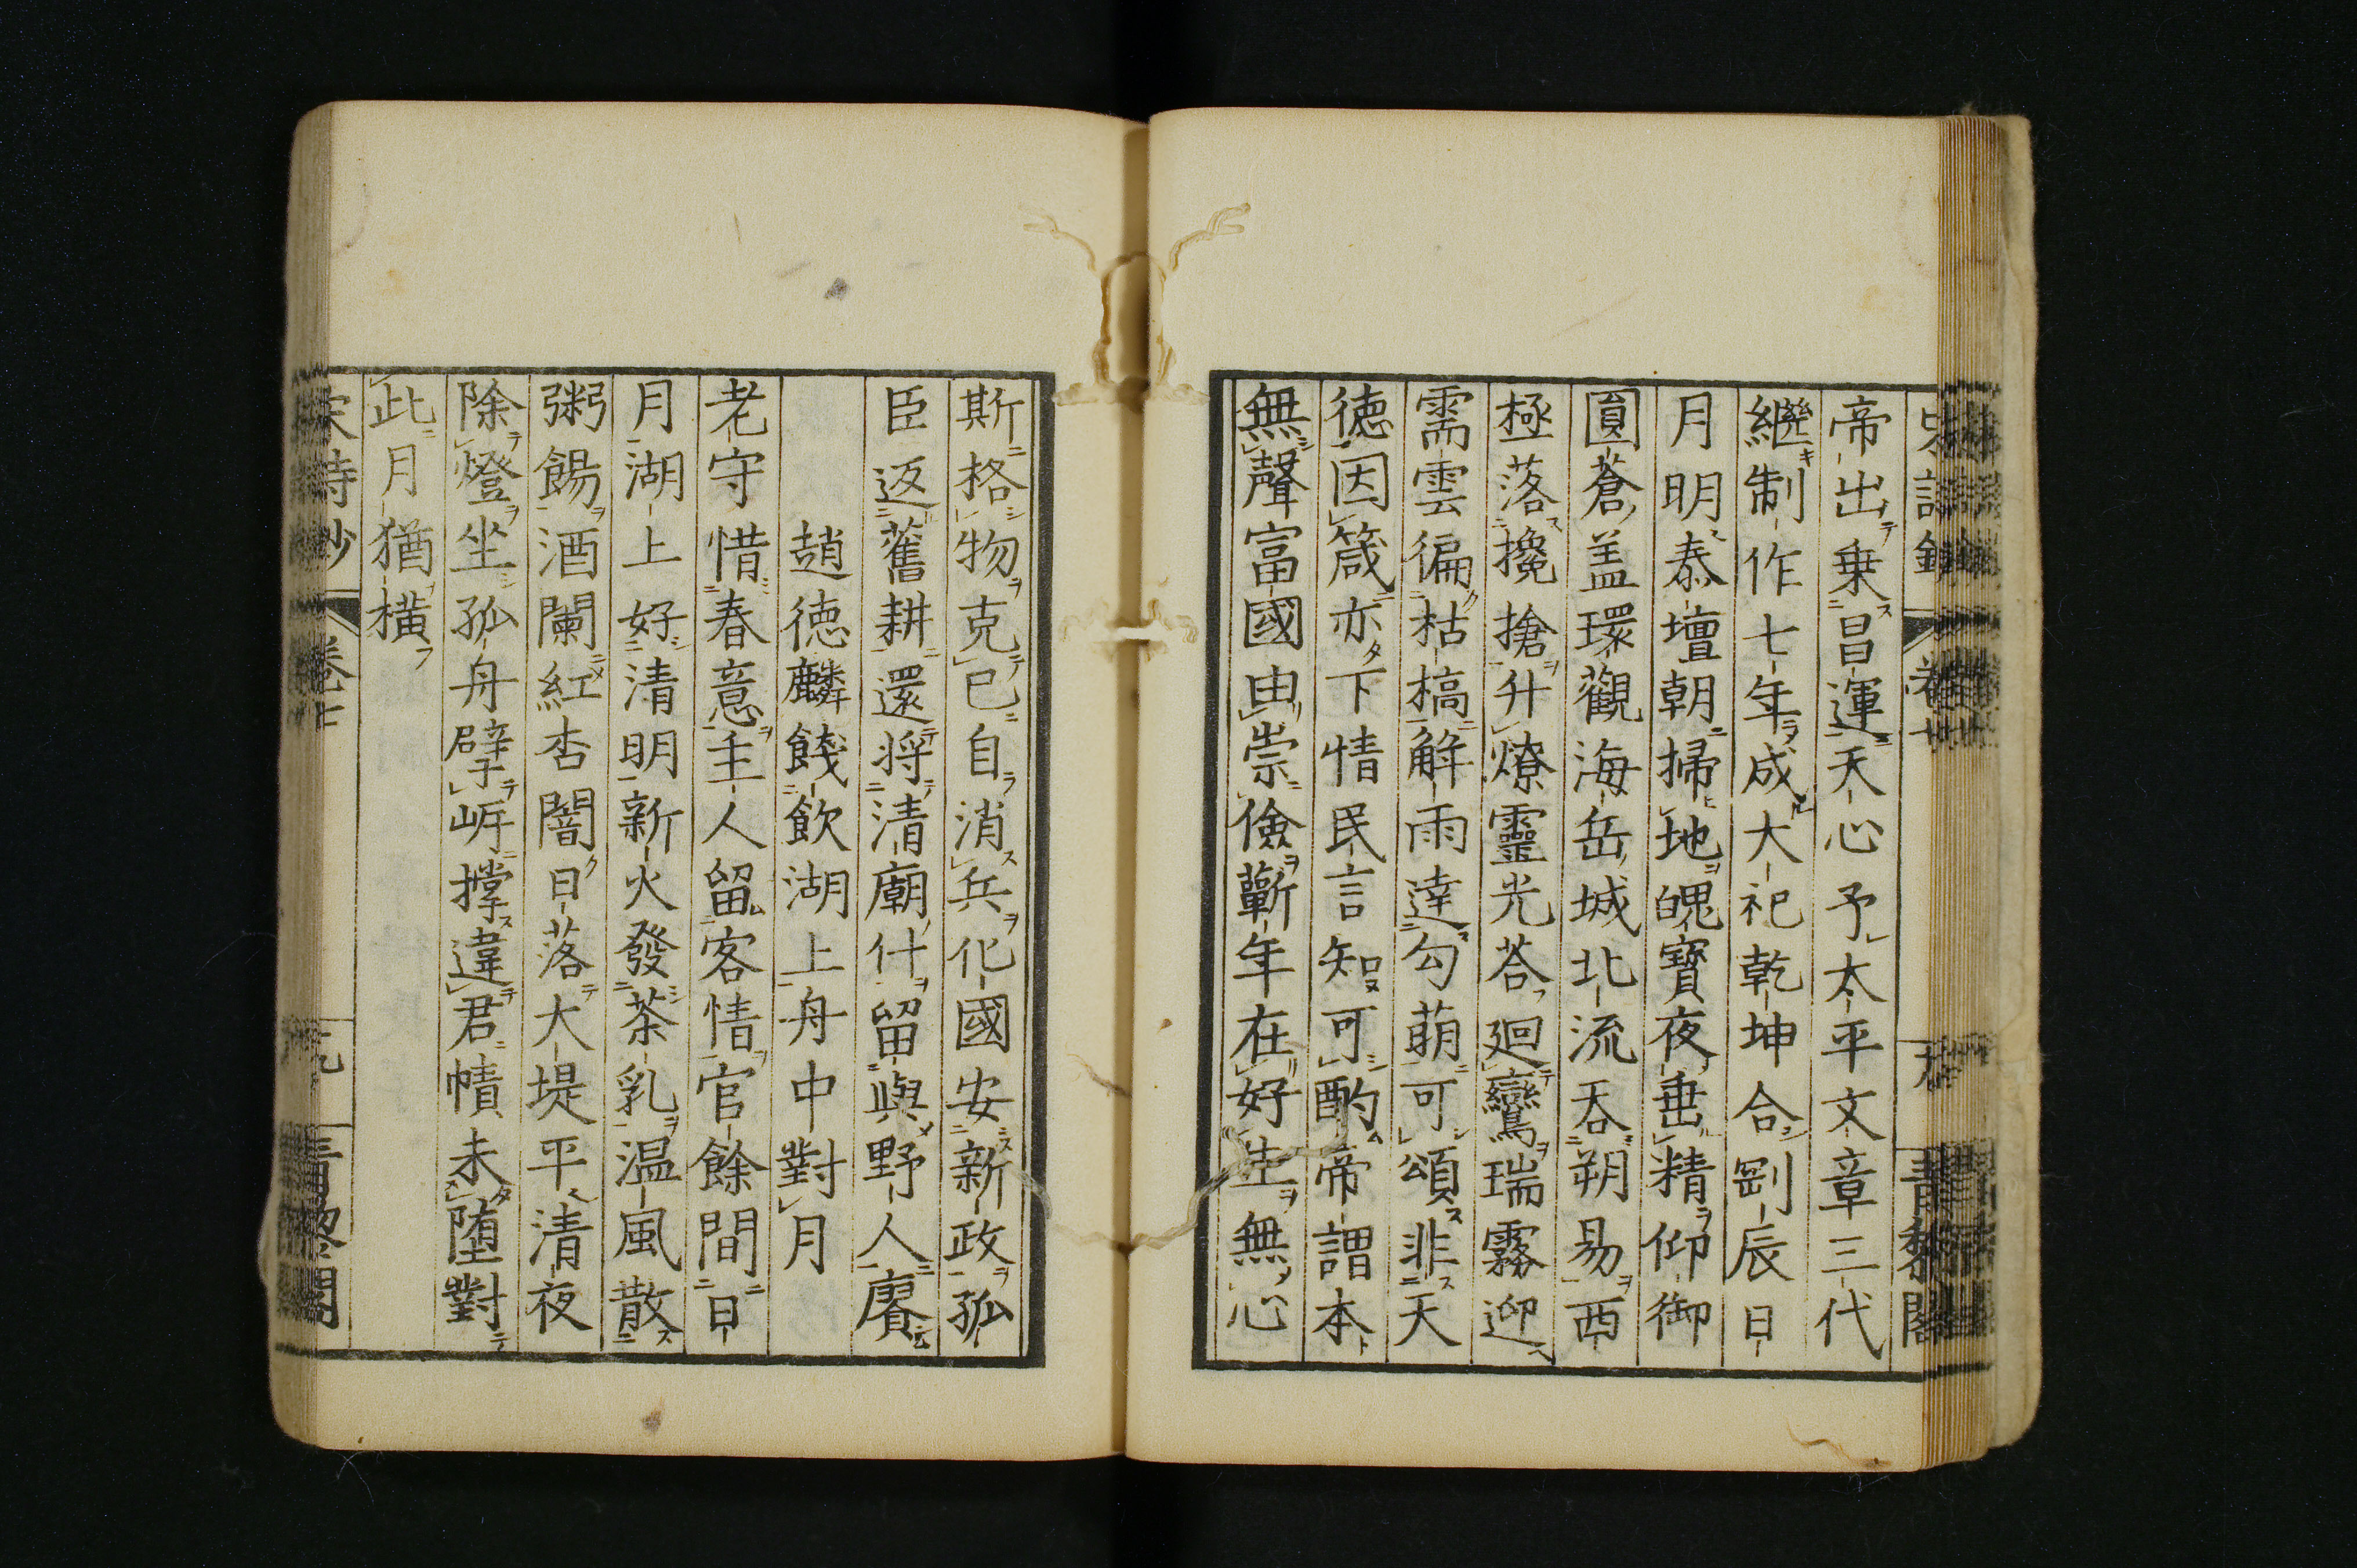 帝出乗昌運天心予太平文章三代
繼制作七年成大祀乾坤合剛辰日
月明泰壇朝掃地魄寶夜垂精仰御
圓蒼盖環觀海岳城北流呑朔易西
極落攙搶升燎靈光荅廻鸞瑞霧迎
需雲徧枯槁解雨達勾萌可頌非天
徳因箴亦下情民言知可酌帝謂本
無聲富國由崇儉蘄年在好生無心
斯格物克已自消兵化國安新政孤
臣返舊耕還将清廟什留與野人賡
趙徳麟餞飲湖上舟中對月
老守惜春意主人留客情官餘間日
月湖上好清明新火發茶乳温風散
粥餳酒闌紅杏闇日落大堤平清夜
除燈坐孤舟擘岍撑違君幘未堕對
此月猶橫
宋詩鈔
青黎閣